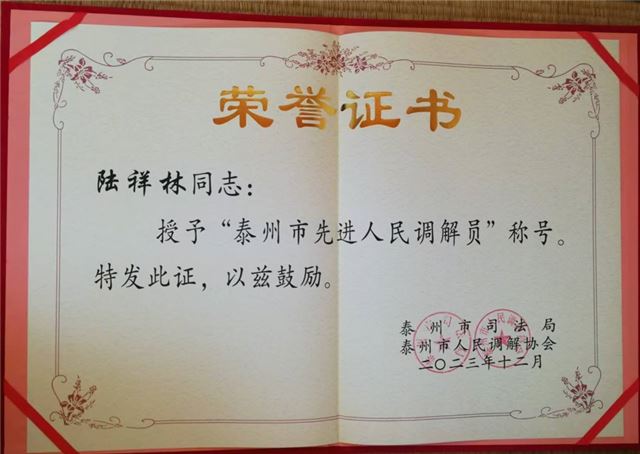 荣誉证书
陆祥林同志：
授予“泰州市先进人民调解员”称号。
特发此证，以兹鼓励。
泰州市司法局
泰州市人民调解协会
二〇二三年十二月